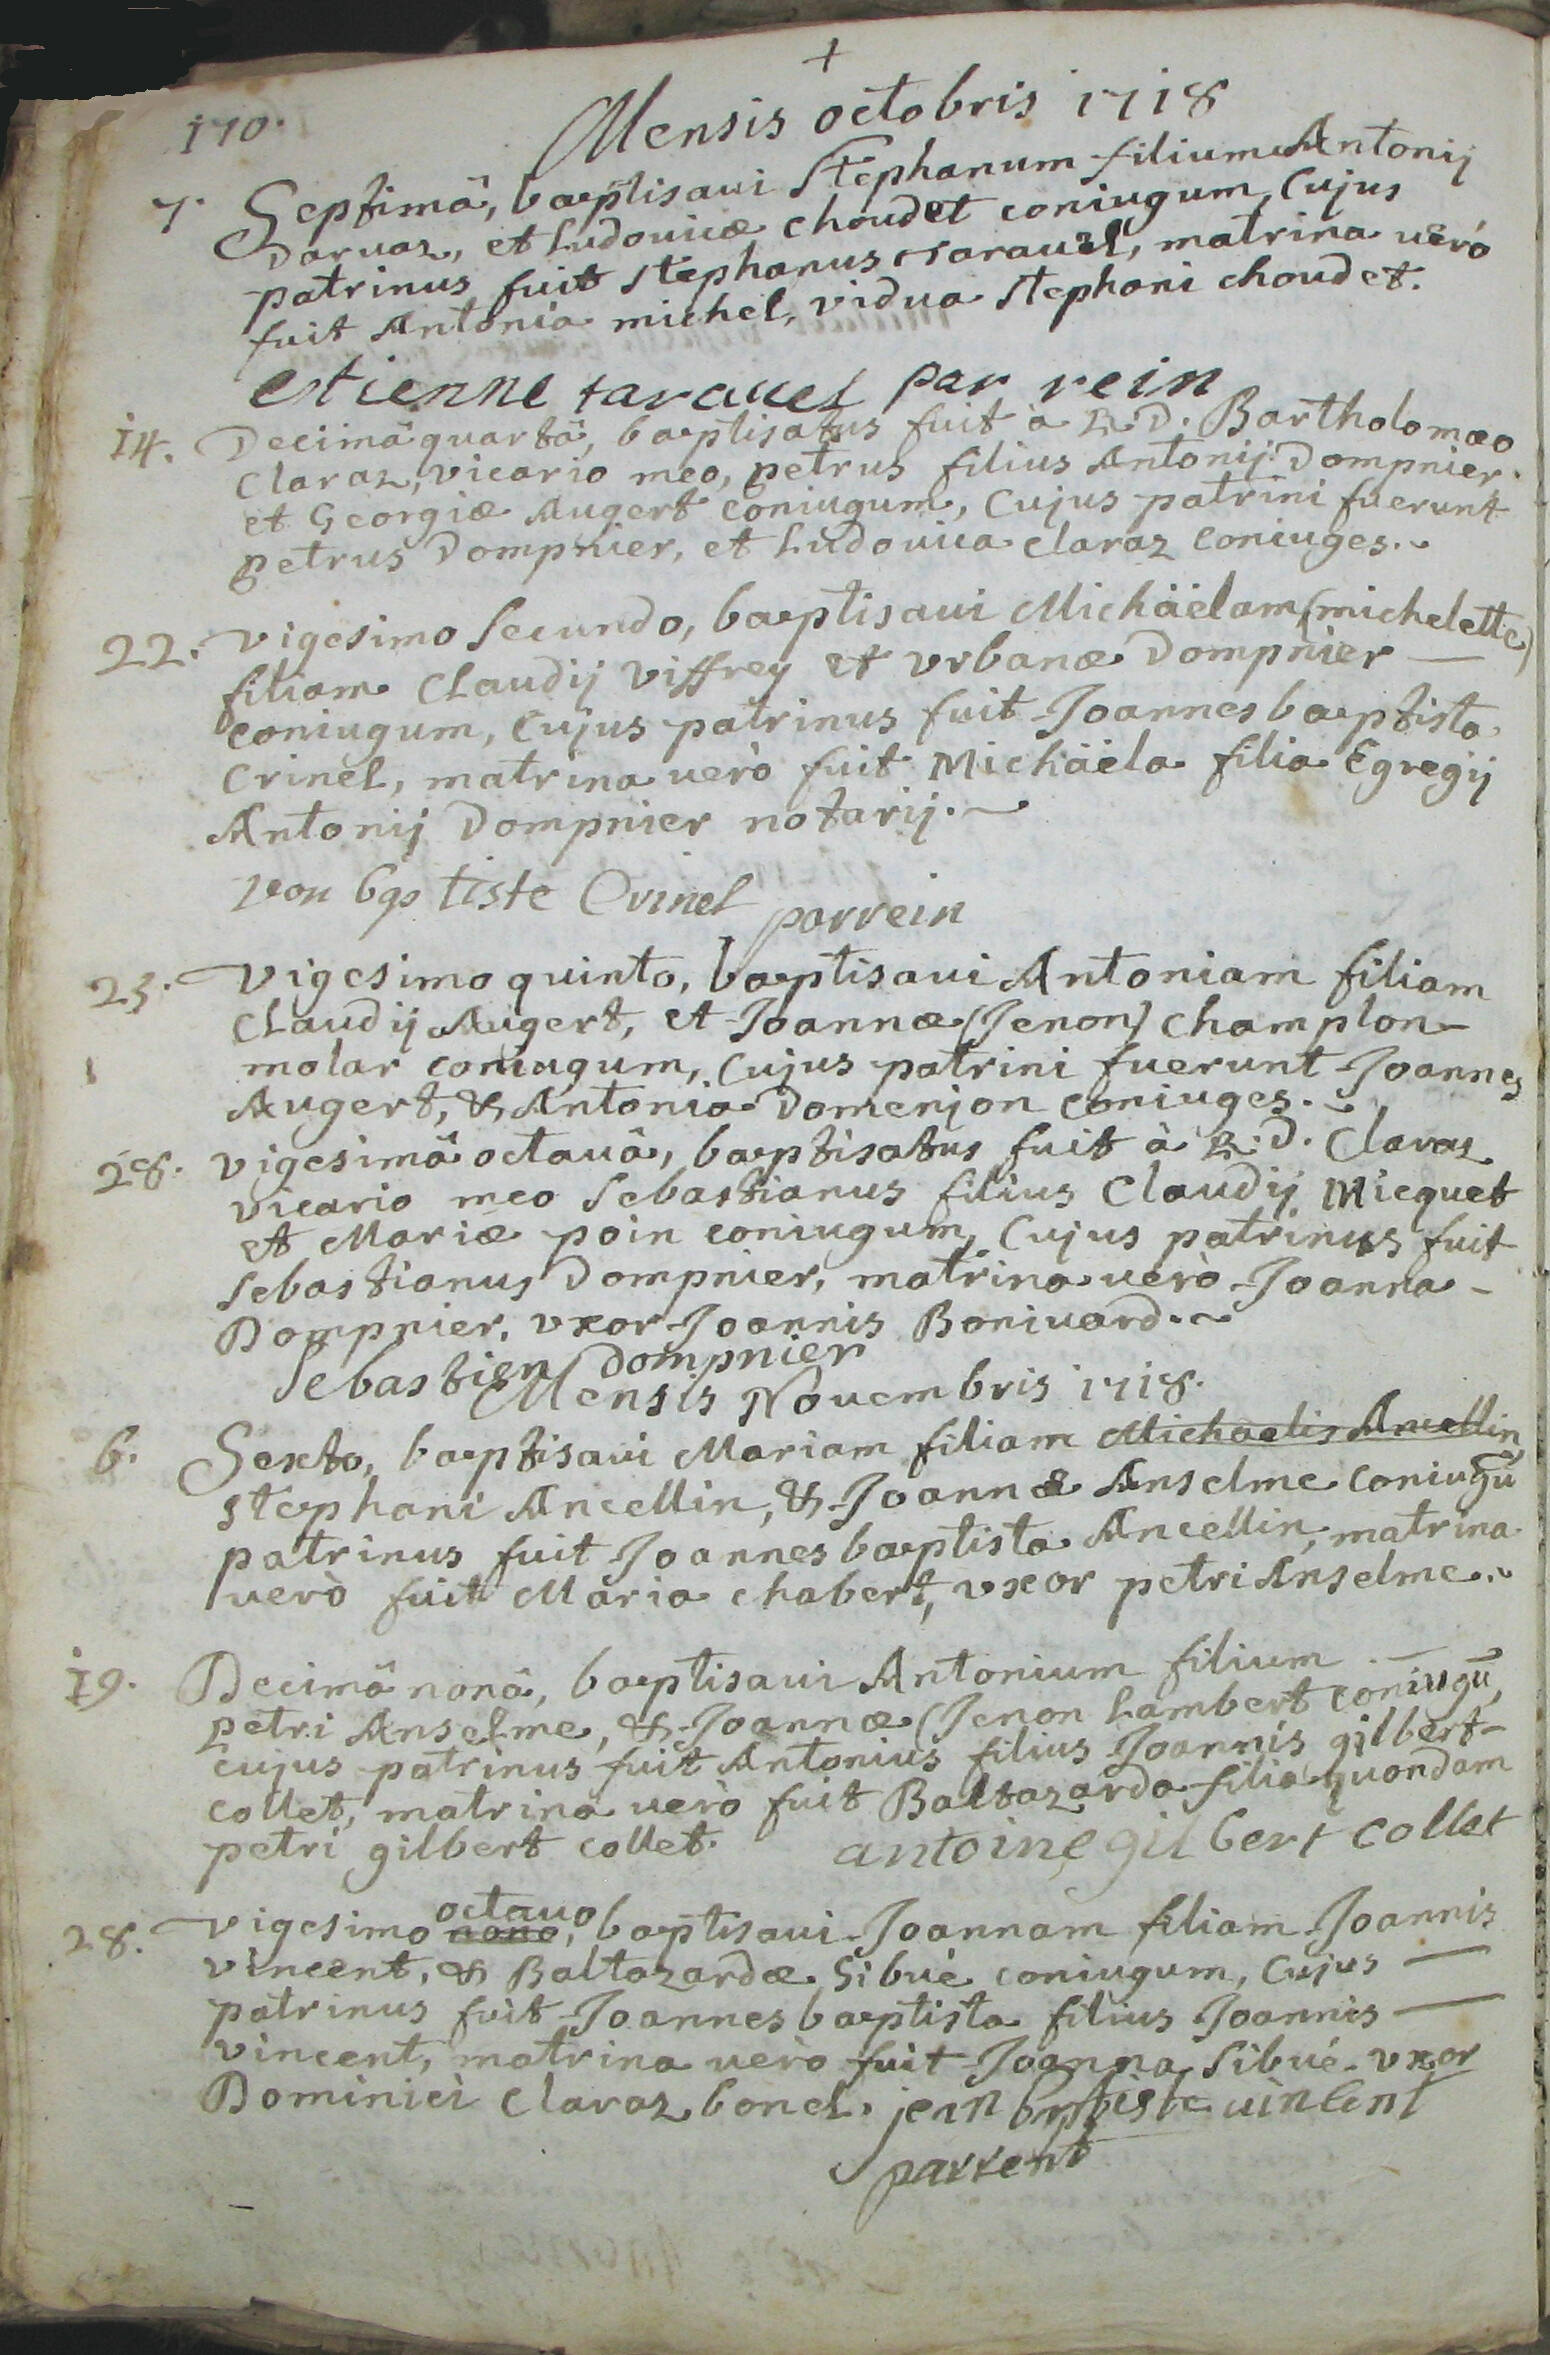 +
170.
Mensis octobris 1718
7. Septimâ, baptisaui Stephanum filium Antonij
Daruaz, et Ludouicæ choudet coniugum, Cujus
patrinus fuit Stephanus tarauel, matrina uerò
fuit Antonia michel, vidua Stephani choudet.
estienne tarauel par rein
14. Decimâ quartâ, baptisatus fuit à R. D. Bartholomæo
Claraz, vicario meo, petrus filius Antonij Dompnier
et Georgiæ Augert coniugum, Cujus patrini fuerunt
petrus Dompnier, et Ludouica claraz coniuges.
22. Vigesimo Secundo, baptisaui Michäelam (michelette)
filiam Claudij Viffrey et vrbanæ Dompnier —
coniugum, Cujus patrinus fuit Joannes baptista
Crinel, matrina uerò fuit Michäela filia Egregij
Antonij Dompnier notarij.
Jean baptiste Crinel parrein
25. Vigesimo quinto, baptisaui Antoniam filiam
Claudij Augert, et Joannæ (Jenon) champlon-
molar coniugum, Cujus patrini fuerunt Joannes
Augert, & Antonia Domenjon coniuges.
28. Vigesimâ octauâ, baptisatus fuit à R. D. Claraz
vicario meo Sebastianus filius Claudij Micquet
et Mariæ poin coniugum, Cujus patrinus fuit
Sebastianus Dompnier, matrina uerò Joanna -
Dompnier, vxor Joannis Boniuard.
Sebastien dompnier
Mensis Nouembris 1718.
6. Sexto, baptisaui Mariam filiam Michaelis Ancellin,
Stephani Ancellin, & Joannæ Anselme coniugū
patrinus fuit Joannes baptista Ancellin, matrina
uerò fuit Maria chabert, vxor petri Anselme.
19. Decimâ nonâ, baptisaui Antonium filium —
petri Anselme, & Joannæ (Jenon Lambert coniugū,
cujus patrinus fuit Antonius filius Joannis gilbert-
collet, matrina uerò fuit Baltazarda filia quondam
petri gilbert collet.
antoine gilbert collet
28. Vigesimo nono, octauo baptisaui Joannam filiam Joannis
vincent, & Baltazardæ Sibué coniugum, Cujus —
patrinus fuit Joannes baptista filius Joannis —
vincent, matrina uerò fuit Joanna Sibué vxor
Dominici Claraz bonel. jean baptiste uincent
parrent